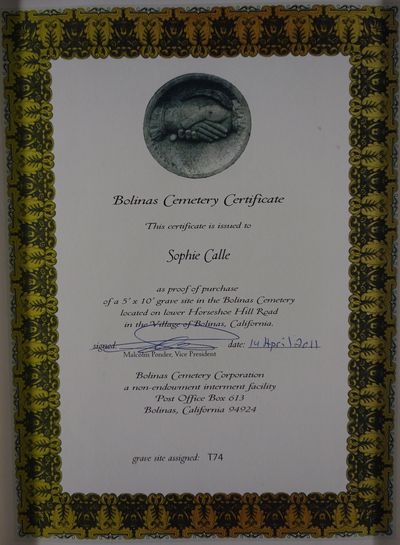 Bolinas Cemetery Certificate
This certificate is issued to
Sophie Calle
as proof of purchase
of a 5' x 10' grave site in the Bolinas Cemetery
located on lower Horseshoe Hill Road
in the Village of Bolinas, California.
signed: date: 14 April 2011
Malcolm Ponder, Vice President
Bolinas Cemetery Corporation
a non-endowment interment facility
Post Office Box 613
Bolinas, California 94924
grave site assigned: T74